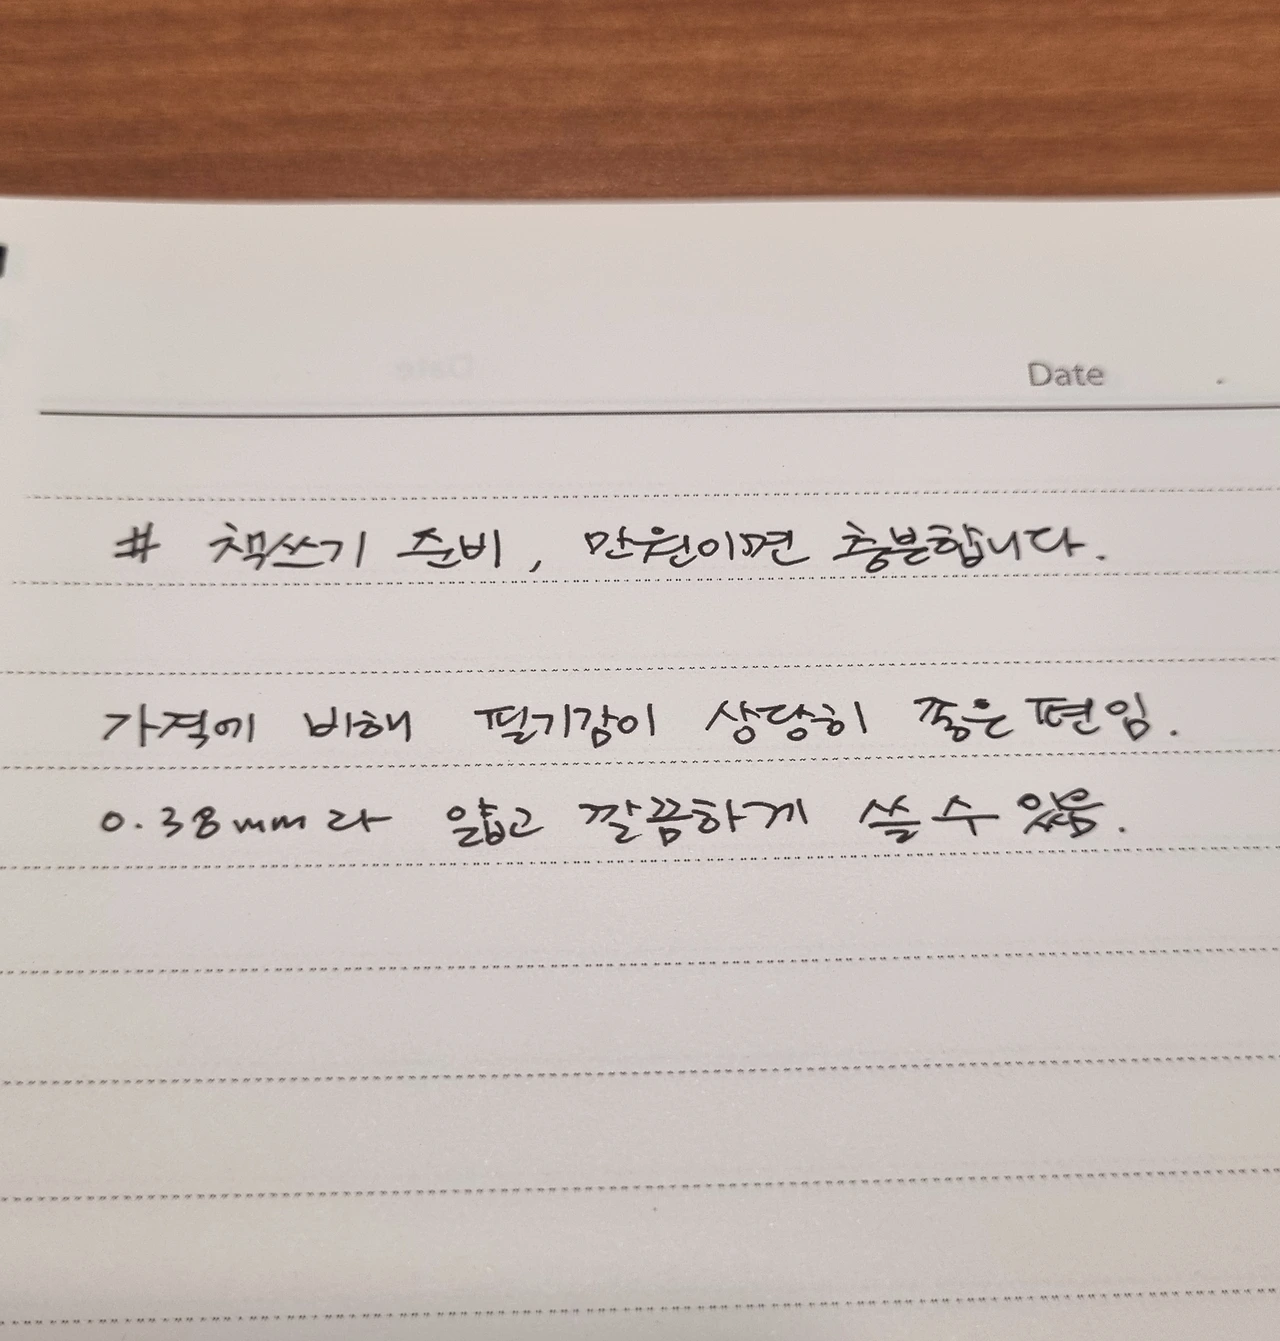 Date
# 책쓰기 준비, 만원이면 충분합니다.
가격에 비해 필기감이 상당히 좋은 편임.
0.38mm라 얇고 깔끔하게 쓸 수 있음.